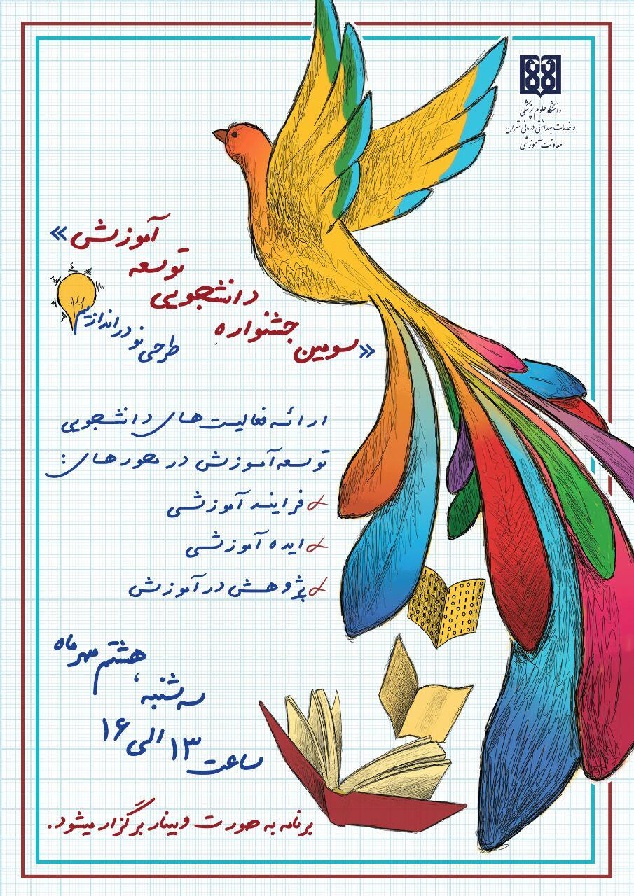 دانشگاه علوم پزشکی
و خدمات بهداشتی درمانی تهران
معاونت آموزشی
«سومین
جشنواره
دانشجویی
توسعه
آموزشی»
طرحی نو دراندازیم
ارائه فعالیت‌های دانشجویی
توسعه آموزش در محورهای:
فرایند آموزشی
ایده آموزشی
پژوهش در آموزش
سه‌شنبه، هشتم مهرماه
ساعت ۱۳ الی ۱۶
برنامه به صورت وبینار برگزار میشود.